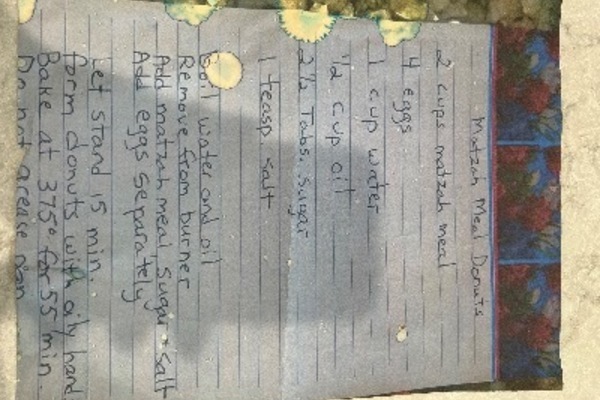 Matzah Meal Donuts
2 cups matzah meal
4 eggs
1 cup water
1/2 cup oil
2 1/2 Tabs. sugar
1 teasp. salt
Boil water and oil
Remove from burner
Add matzah meal, sugar & salt
Add eggs separately
Let stand 15 min.
Form donuts with oily hand
Bake at 375° for 55 min.
Do not grease pan